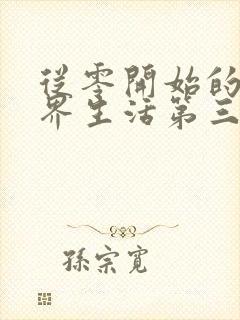 從零開始的
界生活第三
孫宗寬